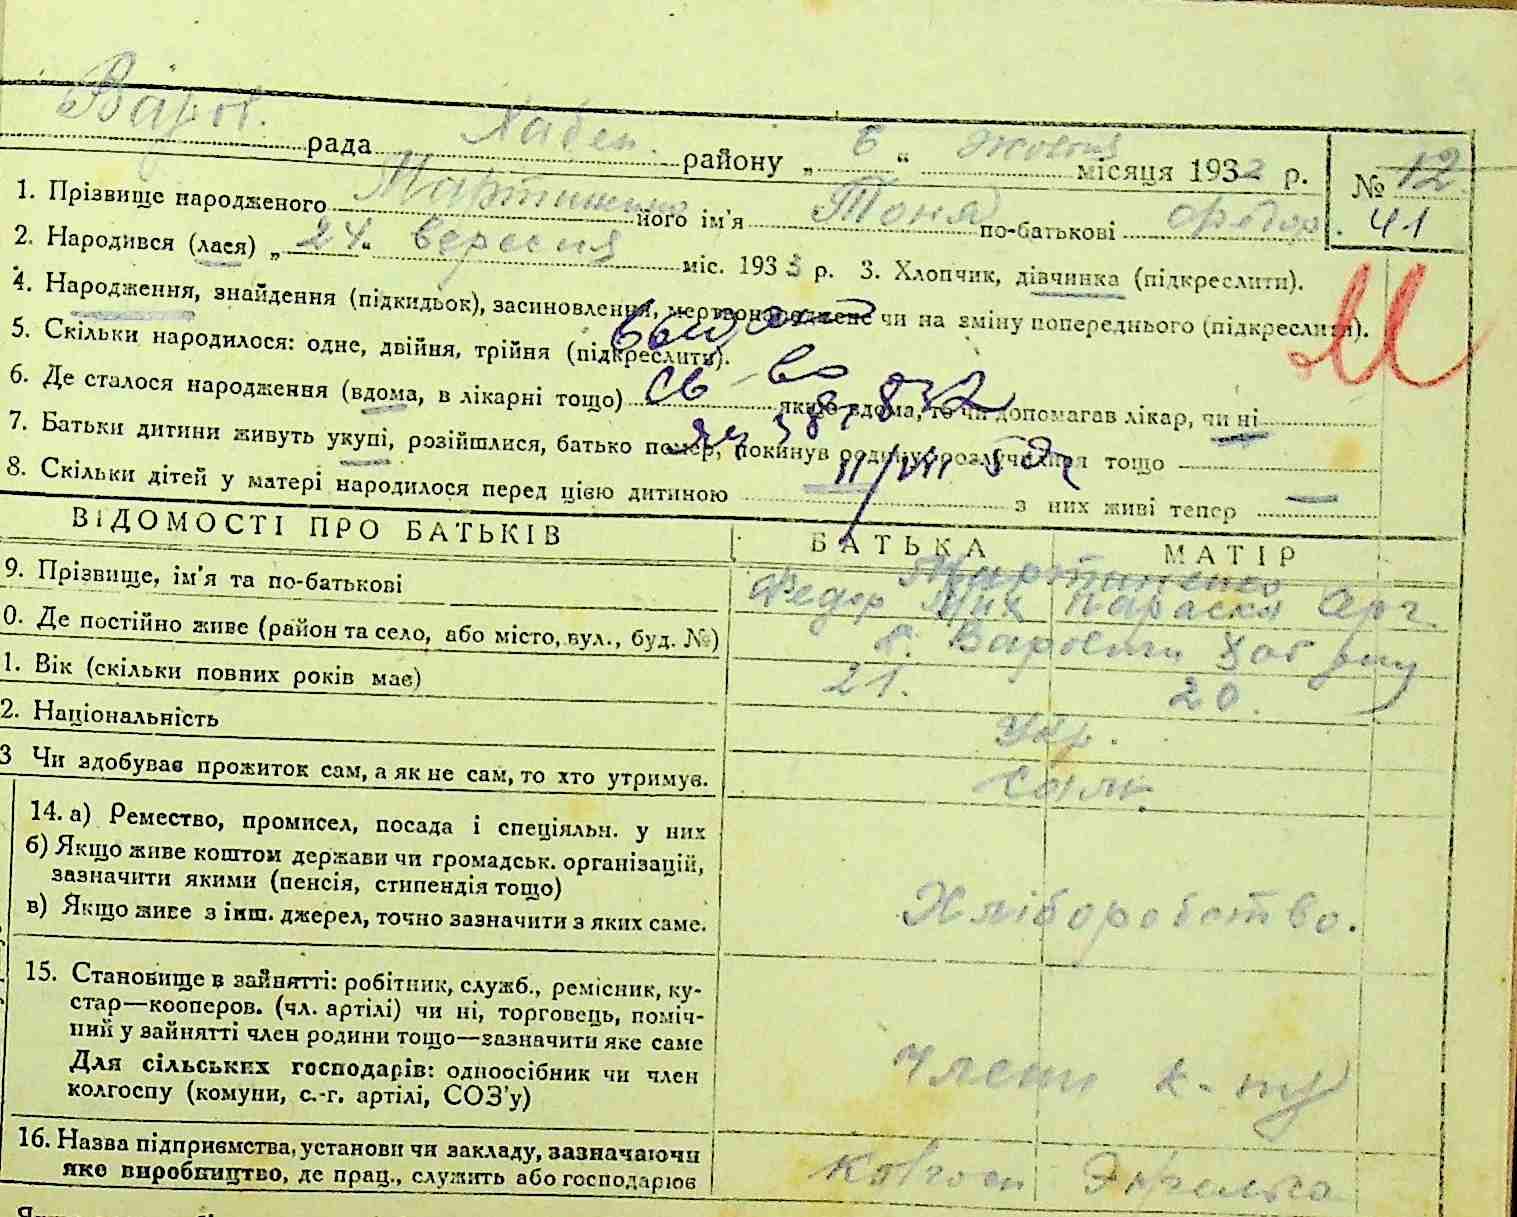 Варов. рада Хабен. району „ 6 “ жовтня місяця 1933 р. № 12
41
1. Прізвище народженого Мартиненко його ім'я Тоня по-батькові Федор.
2. Народився (лася) „ 24 “ вересня міс. 1933 р. 3. Хлопчик, дівчинка (підкреслити).
4. Народження, знайдення (підкидьок), засиновлення, мертвонароджене чи на зміну попереднього (підкреслити).
5. Скільки народилося: одне, двійня, трійня (підкреслити).
6. Де сталося народження (вдома, в лікарні тощо) якщо вдома, то чи допомагав лікар, чи ні
7. Батьки дитини живуть укупі, розійшлися, батько помер, покинув родину, розлучилися тощо
8. Скільки дітей у матері народилося перед цією дитиною — з них живі тепер —
св-во
II/VII
ВІДОМОСТІ ПРО БАТЬКІВ БАТЬКА МАТІР
9. Прізвище, ім'я та по-батькові Мартиненко
Федор Мих Параска
0. Де постійно живе (район та село, або місто, вул., буд. №) с. Варовичи Хаб р-ну
1. Вік (скільки повних років має) 21. 20.
2. Національність Укр.
3 Чи здобуває прожиток сам, а як не сам, то хто утримує. сам
14. а) Ремество, промисел, посада і спеціяльн. у них
б) Якщо живе коштом держави чи громадськ. організацій,
зазначити якими (пенсія, стипендія тощо)
в) Якщо живе з інш. джерел, точно зазначити з яких саме. Хліборобство.
15. Становище в зайнятті: робітник, служб., ремісник, ку-
стар—кооперов. (чл. артілі) чи ні, торговець, поміч-
ний у зайнятті член родини тощо—зазначити яке саме
Для сільських господарів: одноосібник чи член
колгоспу (комуни, с.-г. артілі, СОЗ'у) члени к-пу
16. Назва підприємства, установи чи закладу, зазначаючи
яке виробництво, де прац., служить або господарює колгосп